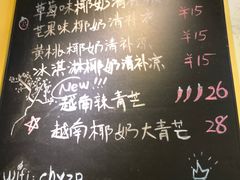 草莓味椰奶清补凉 ¥15
芒果味椰奶清补凉 ¥15
黄桃椰奶清补凉 ¥15
冰淇淋椰奶清补凉
New!!!
越南辣青芒 26
越南椰奶大青芒 28
wifi: